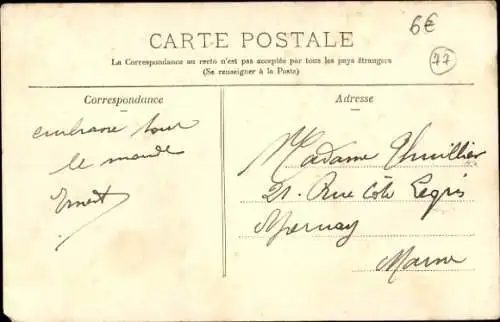 6€
77
CARTE POSTALE
La Correspondance au recto n'est pas acceptée par tous les pays étrangers
(Se renseigner à la Poste)
Correspondance
Adresse
embrasse tout
le monde
Ernest
Madame Thuillier
21. Rue Côte Legris
Epernay
Marne